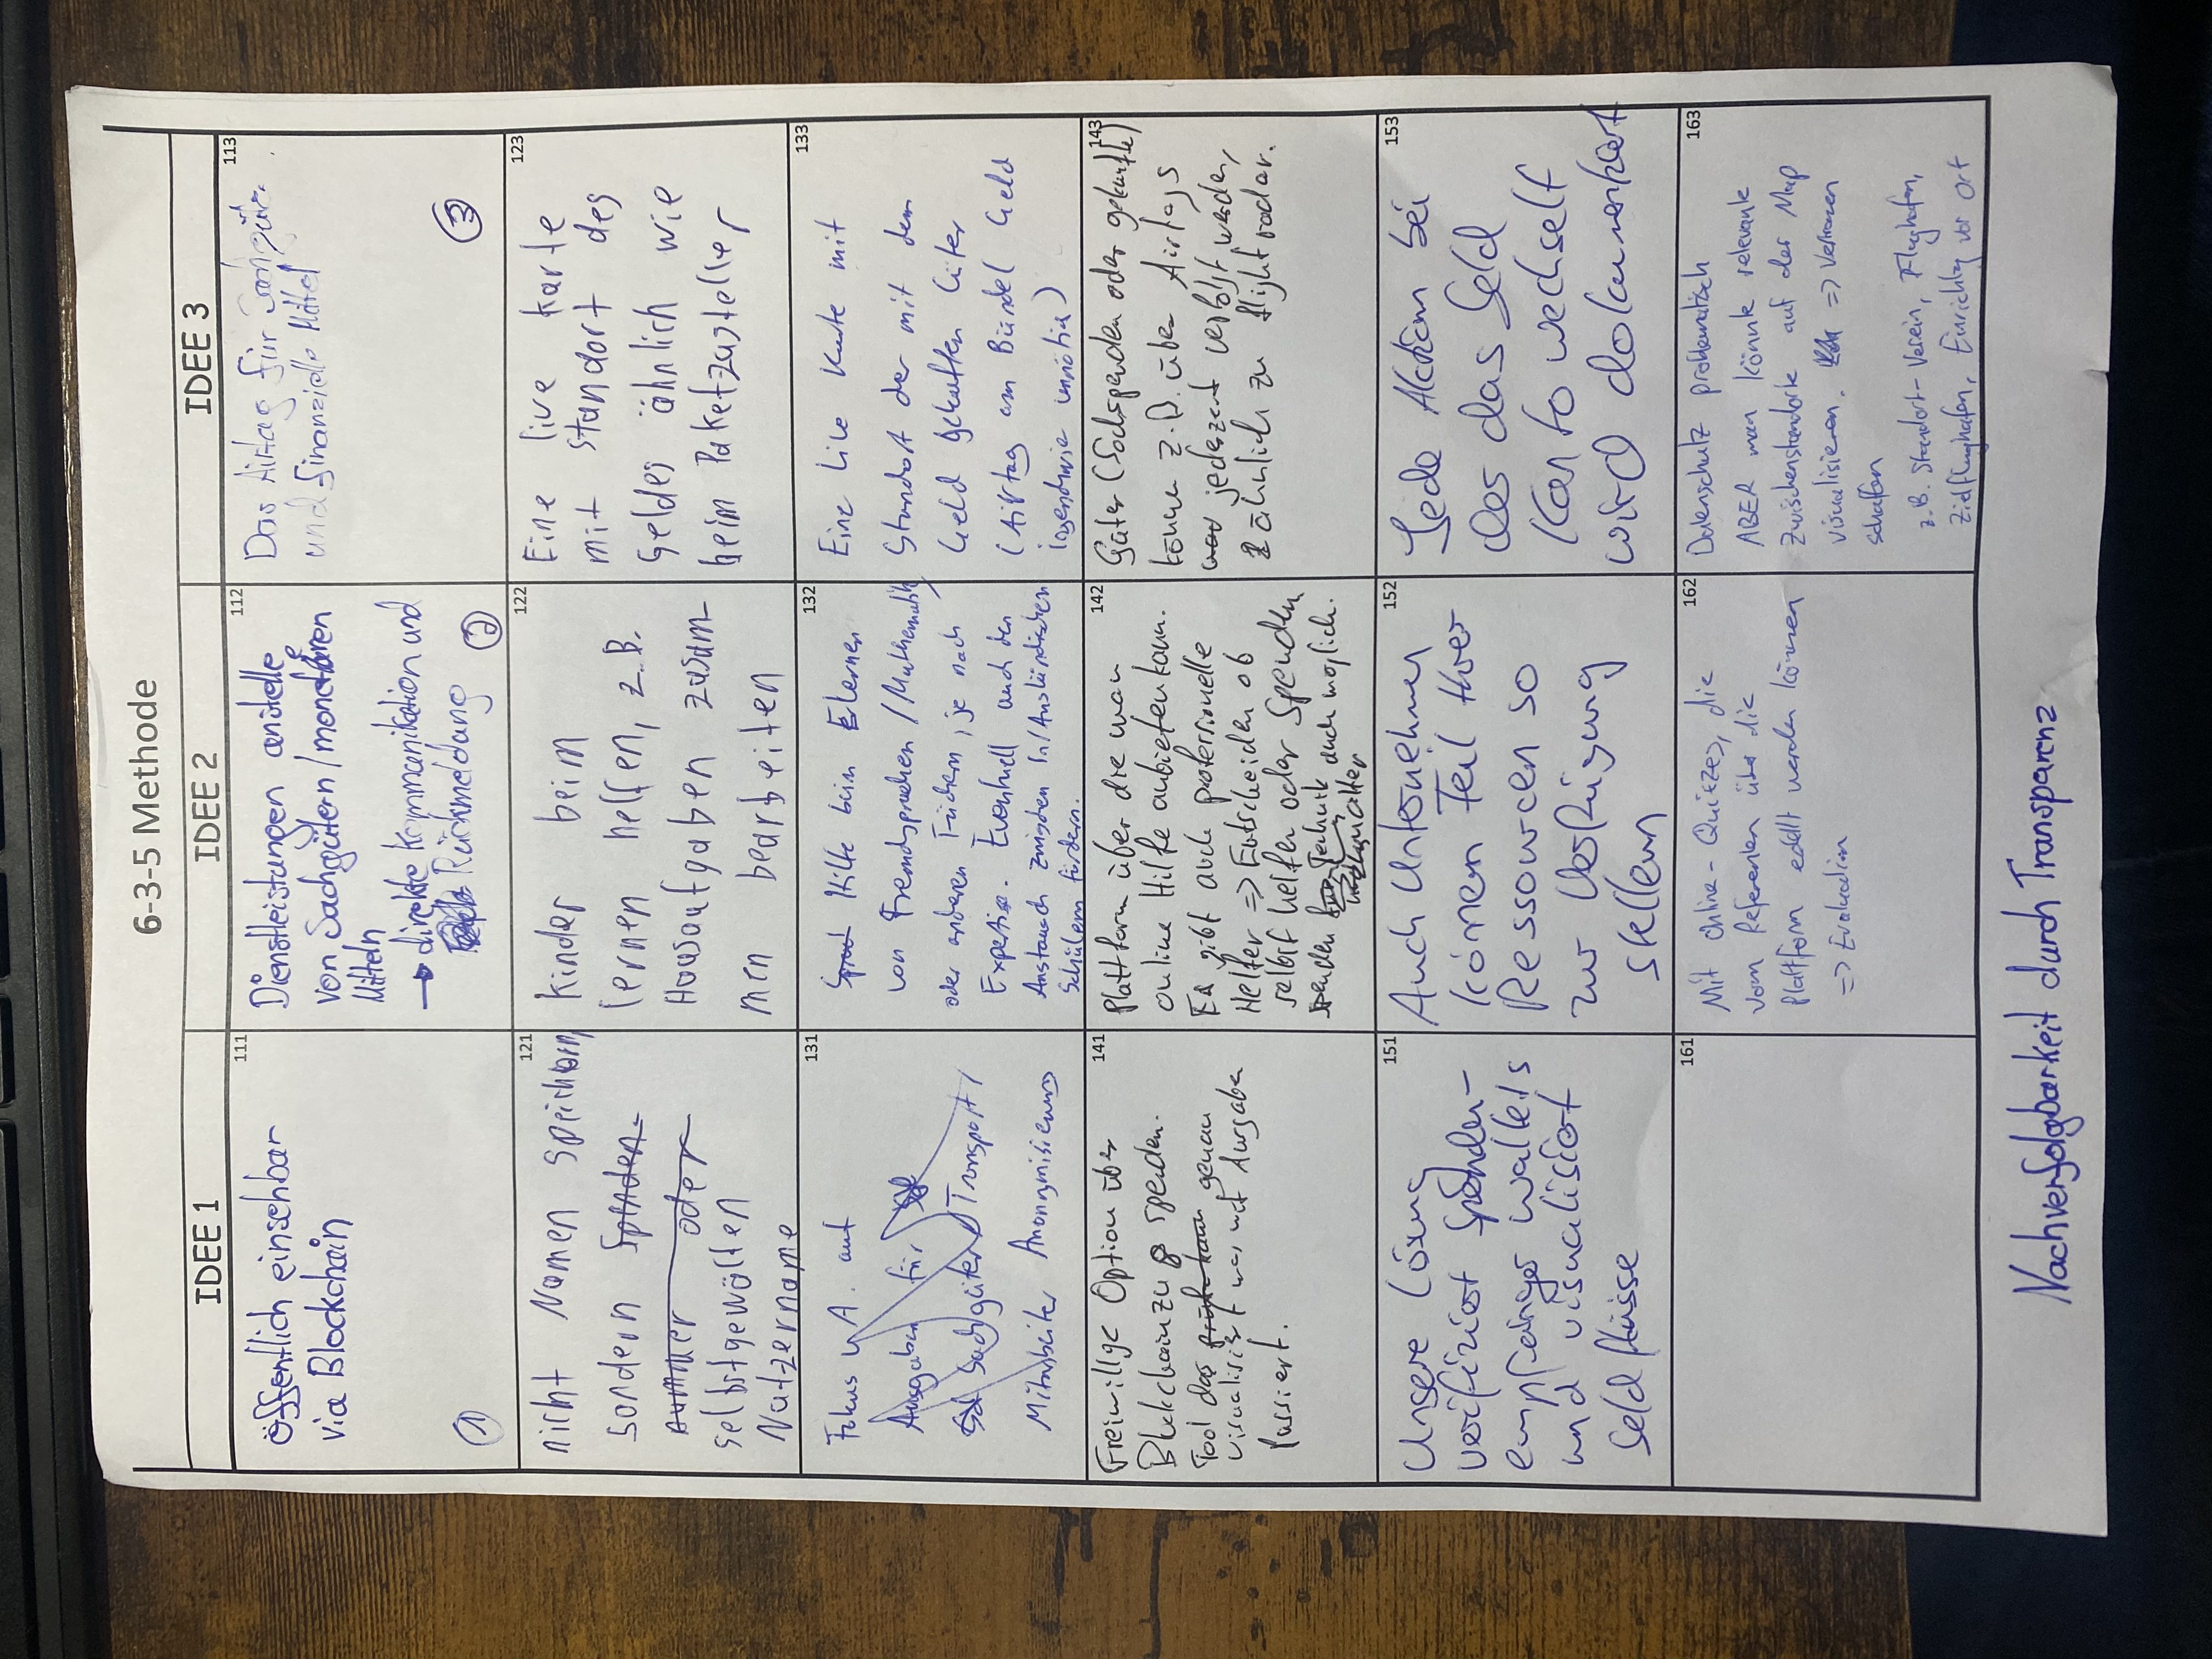 6-3-5 Methode
IDEE 1
IDEE 2
IDEE 3
111
öffentlich einsehbar
via Blockchain
1
112
Dienstleistungen anstelle
von Sachgütern/monetären
Mitteln
→ direkte Kommunikation und
Rückmeldung
2
113
Das Airtag für Sachgüter
und finanzielle Mittel
3
121
nicht Namen speichern,
sondern Spenden-
nummer oder
selbstgewälten
Nutzername
122
Kinder beim
lernen helfen, z.B.
Hausaufgaben zusam-
men bearbeiten
123
Eine live karte
mit standort des
Geldes ähnlich wie
beim Paketzusteller
131
Fokus u.A. auf
Ausgaben für
Sachgüter/Transport/
Mitarbeiter Anonymisierung
132
Hilfe beim Erlernen
von Fremdsprachen/Mathematik
oder anderen Fächern, je nach
Expertise. Eventuell auch den
Austausch zwischen In/Ausländischen
Schülern fördern.
133
Eine Live Karte mit
Standort der mit dem
Geld gekauften Güter
(Airtag am Bündel Geld
irgendwie unnötig)
141
Freiwillige Option über
Blockchain zu spenden.
Tool das genau
visualisiert was mit Ausgaben
Passiert.
142
Plattform über die man
online Hilfe anbieten kann.
Es gibt auch professionelle
Helfer => Entscheiden ob
selbst helfen oder Spenden
Spenden Technik auch möglich.
143
Güter (Sachspenden oder gekaufte)
können z.B. über Airtags
jederzeit verfolgt werden,
ähnlich zu flightradar.
151
Unsere Lösung
verifiziert Spenden-
empfänger wallets
und visualisiert
Geldflüsse
152
Auch Unternehmen
können Teil Ihrer
Ressourcen so
zur Verfügung
stellen
153
Jede Aktion bei
der das Geld
Konto wechselt
wird dokumentiert
161
162
Mit Online-Quizzes, die
vom Referenten über die
Plattform erstellt werden können
=> Evaluation
163
Datenschutz problematisch
ABER man könnte relevante
Zwischenstandorte auf der Map
visualisieren. => Vertrauen
schaffen
z.B. Standort-Verein, Flughafen,
Zielflughafen, Einrichtg vor Ort
Nachverfolgbarkeit durch Transparenz